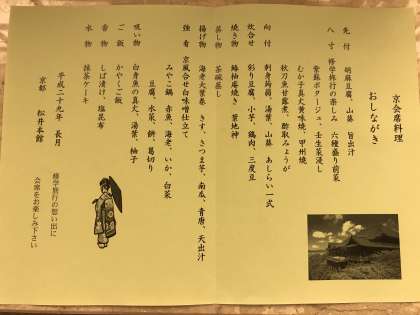 京会席料理
おしながき
先付 胡麻豆腐、山葵、旨出汁
八寸 修学旅行の思い出 六種盛り前菜
紫蘇ポタージュ、壬生菜浸し
むかご真丈黄味焼、甲州焼
秋刀魚甘露煮、酢取みょうが
向付 刺身蒟蒻、湯葉、山葵、あしらい一式
炊合せ 彩り豆腐、小芋、鶏肉、三度豆
焼き物 鰆柚庵焼き 葉地神
蒸し物 茶碗蒸し
揚げ物 海老大葉巻 きす、さつま芋、南瓜、青唐、天出汁
強肴 京風合せ白味噌仕立て
みやこ鍋 赤魚、海老、いか、白菜
豆腐、水菜、餅、葛切り
吸い物 白身魚の真丈、湯葉、柚子
ご飯 かやくご飯
香物 しば漬け、塩昆布
水物 抹茶ケーキ
平成二十九年 長月
京都 松井本館
修学旅行の想い出に
会席をお楽しみ下さい